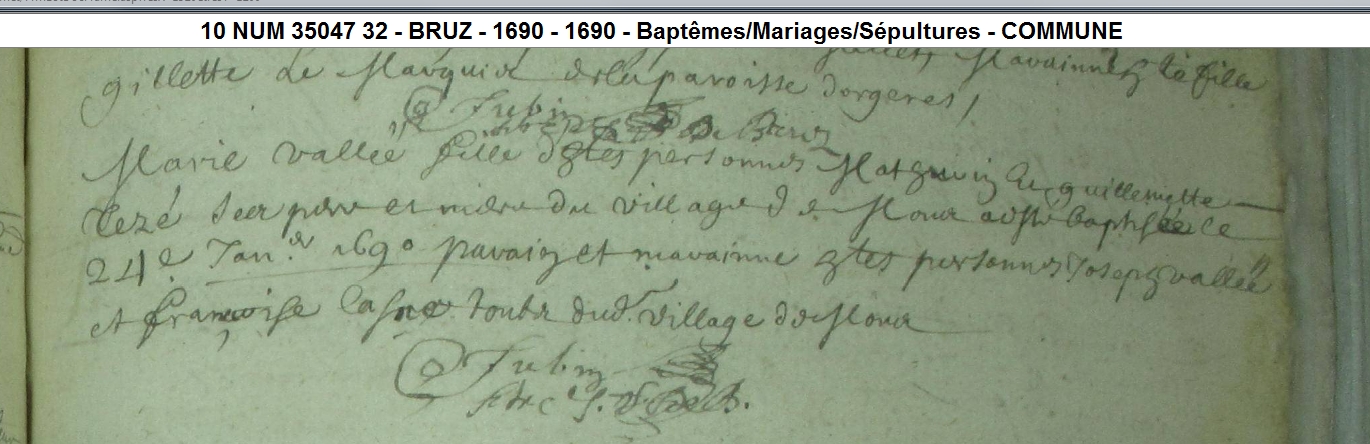 10 NUM 35047 32 - BRUZ - 1690 - 1690 - Baptêmes/Mariages/Sépultures - COMMUNE
gillette Le Marquié de la paroisse dorgeres /
Jubin de Bruz
Marie vallée fille dhtes personnes Mathurin & guillemette
Lezé ses pere et mere du village de Mour a esté baptisée ce
24e Janer 1690 parain et marainne htes personnes Joseph vallée
et françoise Lasne touts dudt village de Mour
Jubin